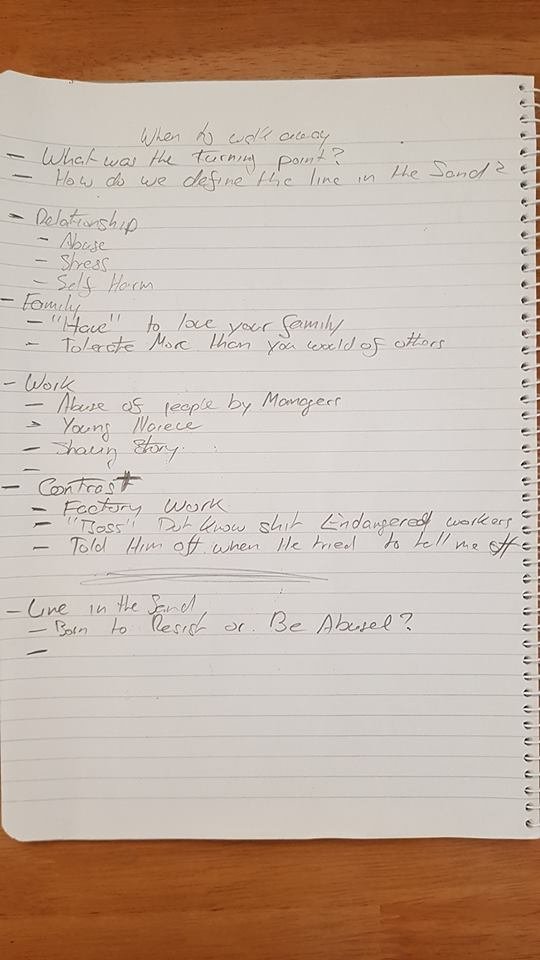 When to walk away
- What was the turning point?
- How do we define the line in the Sand?
- Relationship
- Abuse
- Stress
- Self Harm
- Family
- "Have" to love your family
- Tolerate More than you would of others
- Work
- Abuse of people by Managers
- Young
- Shaun Story
-
- Contrast
- Factory Work
- "Boss" Didn't know shit Endangered workers
- Told Him off when He tried to tell me off
- Line in the Sand
- Born to Resist or Be Abused?
-